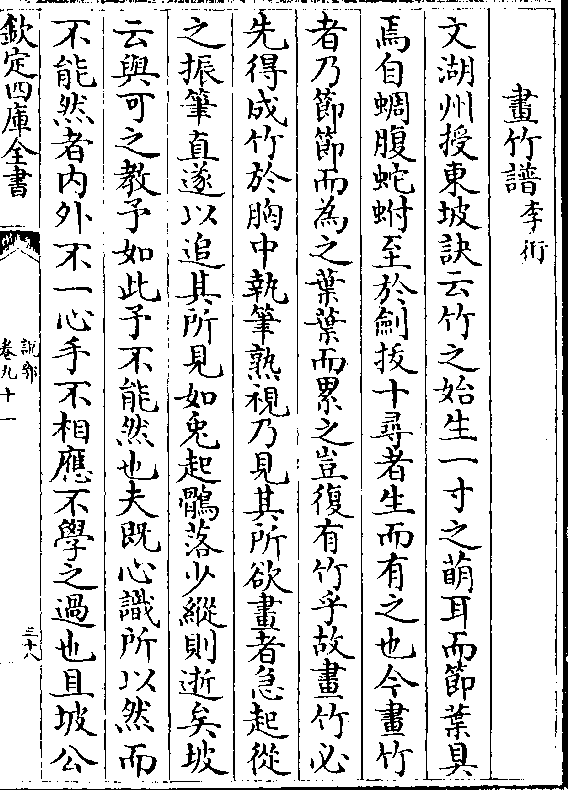 畫竹譜李衎
文湖州授東坡訣云竹之始生一寸之萌耳而節葉具
焉自蜩腹蛇蚹至於劍拔十尋者生而有之也今畫竹
者乃節節而為之葉葉而累之豈復有竹乎故畫竹必
先得成竹於胸中執筆熟視乃見其所欲畫者急起從
之振筆直遂以追其所見如兔起鶻落少縱則逝矣坡
云與可之教予如此予不能然也夫既心識所以然而
不能然者內外不一心手不相應不學之過也且坡公
欽定四庫全書
說郛
卷九十一
三十八